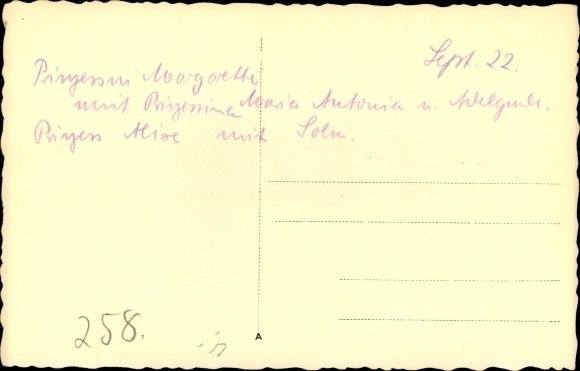 Sept. 22.
Prinzessin Margarethe
mit Prinzessina Maria Antonia u. Adelgunde.
Prinzess Alise mit Sohn.
258.
A